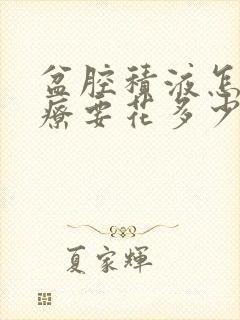 盆腔積液怎
療要花多少
夏家輝